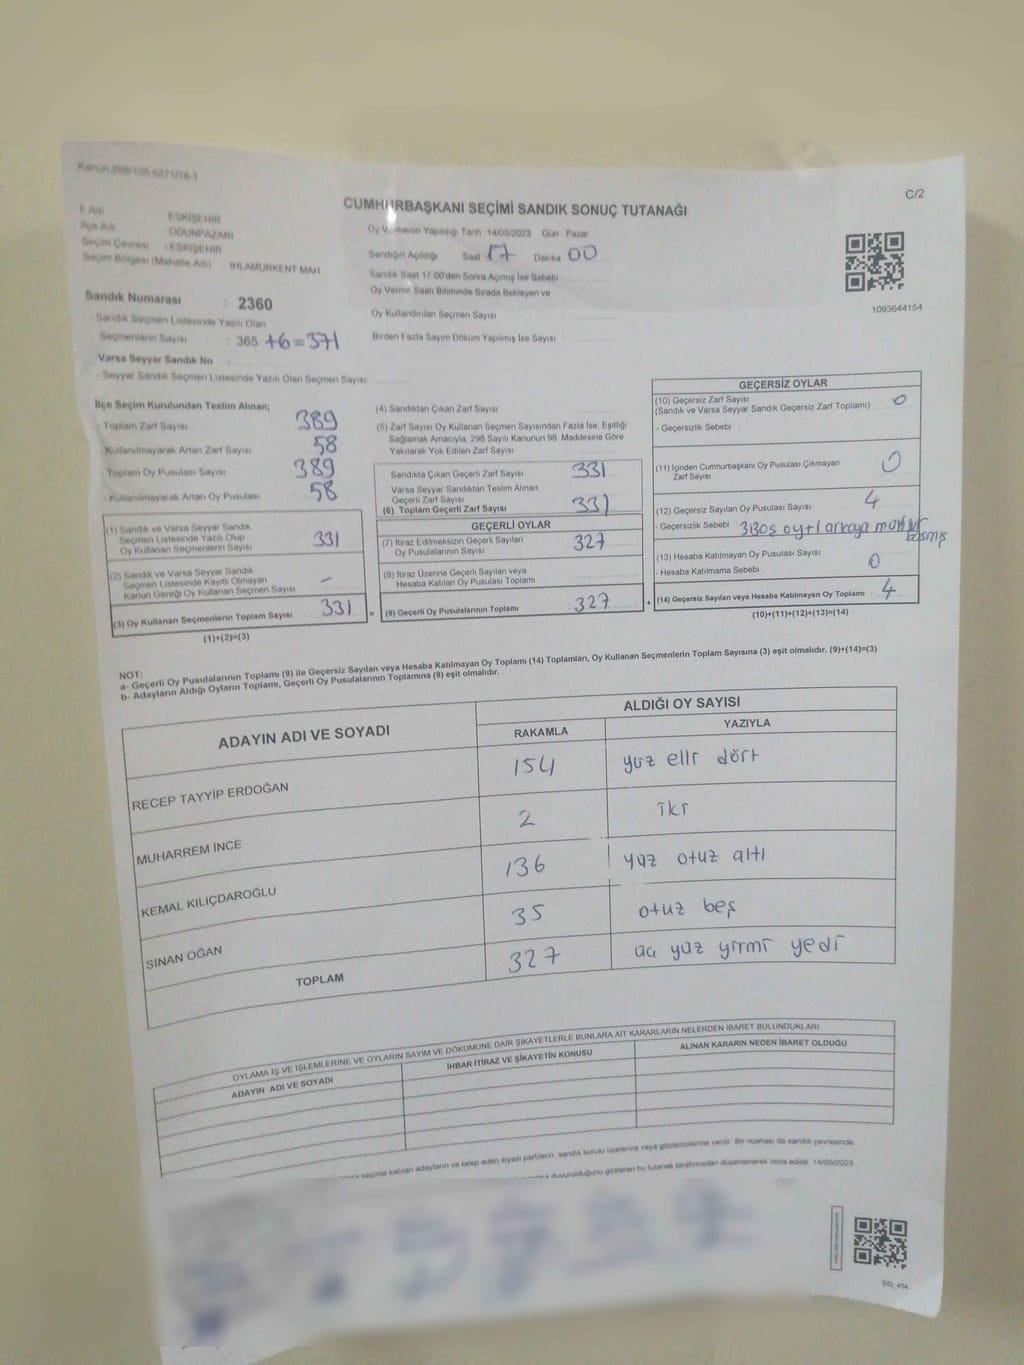 C/2
CUMHURBAŞKANI SEÇİMİ SANDIK SONUÇ TUTANAĞI
İl Adı ESKİŞEHİR
İlçe Adı ODUNPAZARI
Seçim Çevresi : ESKİŞEHİR
Seçim Bölgesi (Mahalle Adı) IHLAMURKENT MAH
Oy Vermenin Yapıldığı Tarih 14/05/2023 Gün Pazar
Sandığın Açıldığı Saat 17 Dakika 00
Sandık Saat 17 00'den Sonra Açılmış İse Sebebi
Oy Verme Saati Bitiminde Sırada Bekleyen ve
Oy Kullandırılan Seçmen Sayısı
Birden Fazla Sayım Döküm Yapılmış İse Sayısı
1093644154
Sandık Numarası : 2360
- Sandık Seçmen Listesinde Yazılı Olan
Seçmenlerin Sayısı : 365 +6=371
Varsa Seyyar Sandık No
- Seyyar Sandık Seçmen Listesinde Yazılı Olan Seçmen Sayısı
İlçe Seçim Kurulundan Teslim Alınan;
- Toplam Zarf Sayısı 389
- Kullanılmayarak Artan Zarf Sayısı 58
- Toplam Oy Pusulası Sayısı 389
- Kullanılmayarak Artan Oy Pusulası 58
(1) Sandık ve Varsa Seyyar Sandık
Seçmen Listesinde Yazılı Olup
Oy Kullanan Seçmenlerin Sayısı 331
(2) Sandık ve Varsa Seyyar Sandık
Seçmen Listesinde Kayıtlı Olmayan
Kanun Gereği Oy Kullanan Seçmen Sayısı –
(3) Oy Kullanan Seçmenlerin Toplam Sayısı 331 =
(1)+(2)=(3)
(4) Sandıktan Çıkan Zarf Sayısı
(5) Zarf Sayısı Oy Kullanan Seçmen Sayısından Fazla İse, Eşitliği
Sağlamak Amacıyla, 298 Sayılı Kanunun 98. Maddesine Göre
Yakılarak Yok Edilen Zarf Sayısı
Sandıkta Çıkan Geçerli Zarf Sayısı 331
Varsa Seyyar Sandıktan Teslim Alınan
Geçerli Zarf Sayısı
(6) Toplam Geçerli Zarf Sayısı 331
GEÇERLİ OYLAR
(7) İtiraz Edilmeksizin Geçerli Sayılan
Oy Pusulalarının Sayısı 327
(8) İtiraz Üzerine Geçerli Sayılan veya
Hesaba Katılan Oy Pusulası Toplamı
(9) Geçerli Oy Pusulalarının Toplamı 327 +
GEÇERSİZ OYLAR
(10) Geçersiz Zarf Sayısı 0
(Sandık ve Varsa Seyyar Sandık Geçersiz Zarf Toplamı)
- Geçersizlik Sebebi
(11) İçinden Cumhurbaşkanı Oy Pusulası Çıkmayan
Zarf Sayısı 0
(12) Geçersiz Sayılan Oy Pusulası Sayısı 4
- Geçersizlik Sebebi 3 Boş oy+1 arkaya mühür
basmış
(13) Hesaba Katılmayan Oy Pusulası Sayısı 0
- Hesaba Katılmama Sebebi
(14) Geçersiz Sayılan veya Hesaba Katılmayan Oy Toplamı 4
(10)+(11)+(12)+(13)=(14)
NOT:
a- Geçerli Oy Pusulalarının Toplamı (9) ile Geçersiz Sayılan veya Hesaba Katılmayan Oy Toplamı (14) Toplamları, Oy Kullanan Seçmenlerin Toplam Sayısına (3) eşit olmalıdır. (9)+(14)=(3)
b- Adayların Aldığı Oyların Toplamı, Geçerli Oy Pusulalarının Toplamına (9) eşit olmalıdır.
ADAYIN ADI VE SOYADI
ALDIĞI OY SAYISI
RAKAMLA YAZIYLA
RECEP TAYYİP ERDOĞAN 154 yüz elli dört
MUHARREM İNCE 2 iki
KEMAL KILIÇDAROĞLU 136 yüz otuz altı
SİNAN OĞAN 35 otuz beş
TOPLAM 327 üç yüz yirmi yedi
OYLAMA İŞ VE İŞLEMLERİNE VE OYLARIN SAYIM VE DÖKÜMÜNE DAİR ŞİKAYETLERLE BUNLARA AİT KARARLARIN NELERDEN İBARET BULUNDUKLARI
ADAYIN ADI VE SOYADI İHBAR İTİRAZ VE ŞİKAYETİN KONUSU ALINAN KARARIN NEDEN İBARET OLDUĞU
seçime katılan adayların ve talep eden siyasi partilerin sandık kurulu üyelerine veya gözlemcilerine verilir. Bir nüshası da sandık çevresinde
duyurulduğunu gösteren bu tutanak tarafımızdan düzenlenerek imza edildi. 14/05/2023